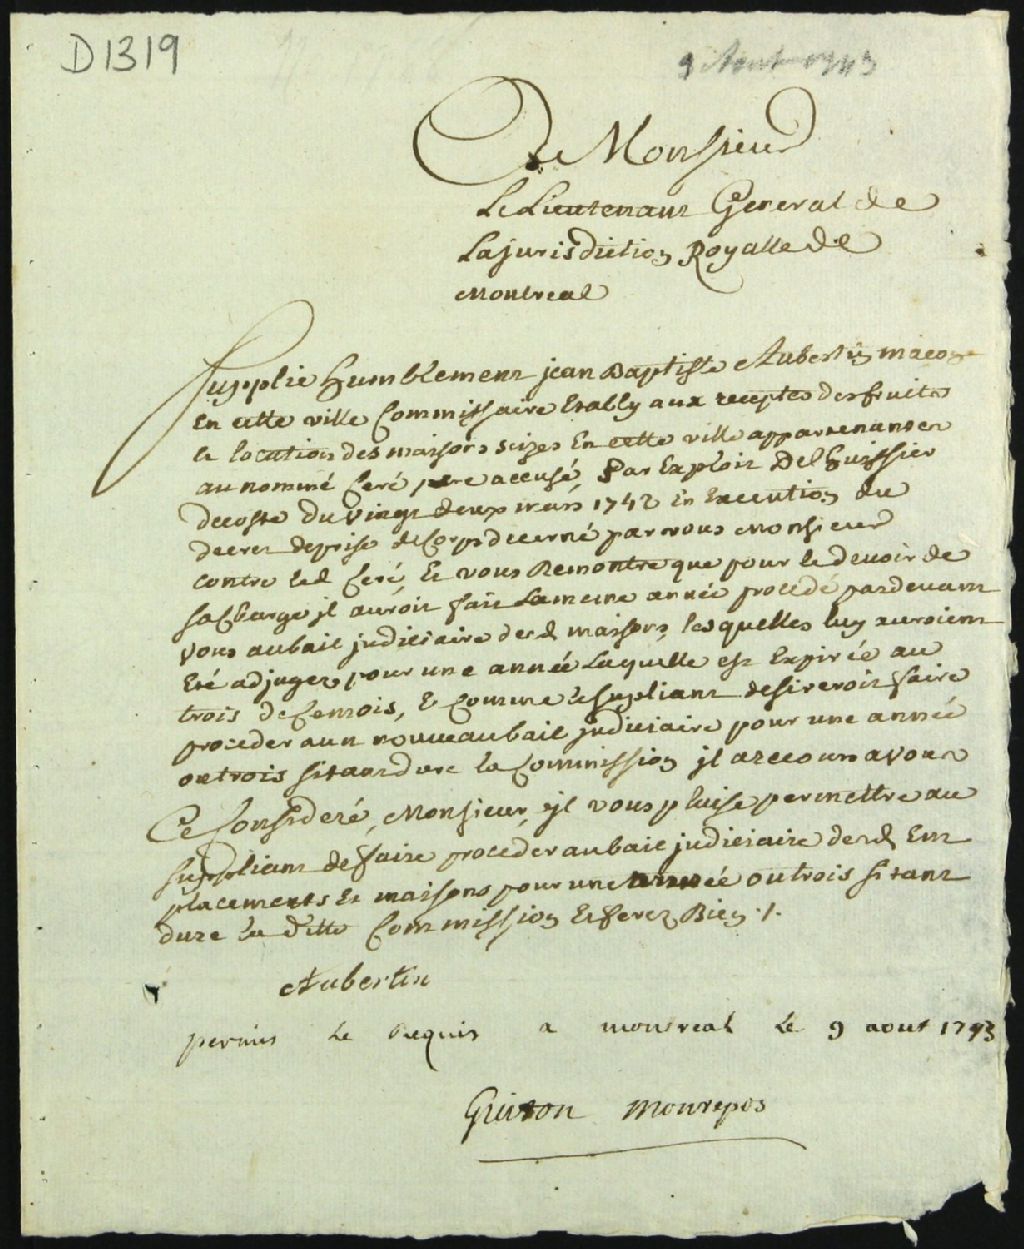 D1319
9 Aout 1743
A Monsieur
Le Lieutenant General de
La jurisdiction Royalle de
Montreal
Supplie humblement jean Baptiste Aubertin macon
En cette ville Commissaire Etably aux receptes des fruits
et location des maisons scizes En cette ville appartenantes
au nommé Ceré pere accusé, Par Exploit De l huissier
decoste Du vingt deux mars 1742 En Execution du
decret de prise de Corps decerné par vous Monsieur
contre led Ceré, Et vous Remontre que pour le devoir de
sa Charge jl auroit fait La meme année procedé pardevant
vous au bail judiciaire desd maisons, les quelles luy auroient
Eté adjugez pour une année Laquelle est Expirée au
trois de Ce mois, Et Comme le supliant desireroit faire
proceder a un nouveau bail judiciaire pour une année
ou trois si tant dure la Commission jl a recours a vous
Ce Consideré, Monsieur, jl vous plaise permettre au
suppliant de faire proceder au bail judiciaire desd Em
placements Et maisons pour une année ou trois si tant
dure la ditte Commission Et ferez Bien ./.
Aubertin
permis le Requis a montreal le 9 aout 1743
Guiton Monrepos